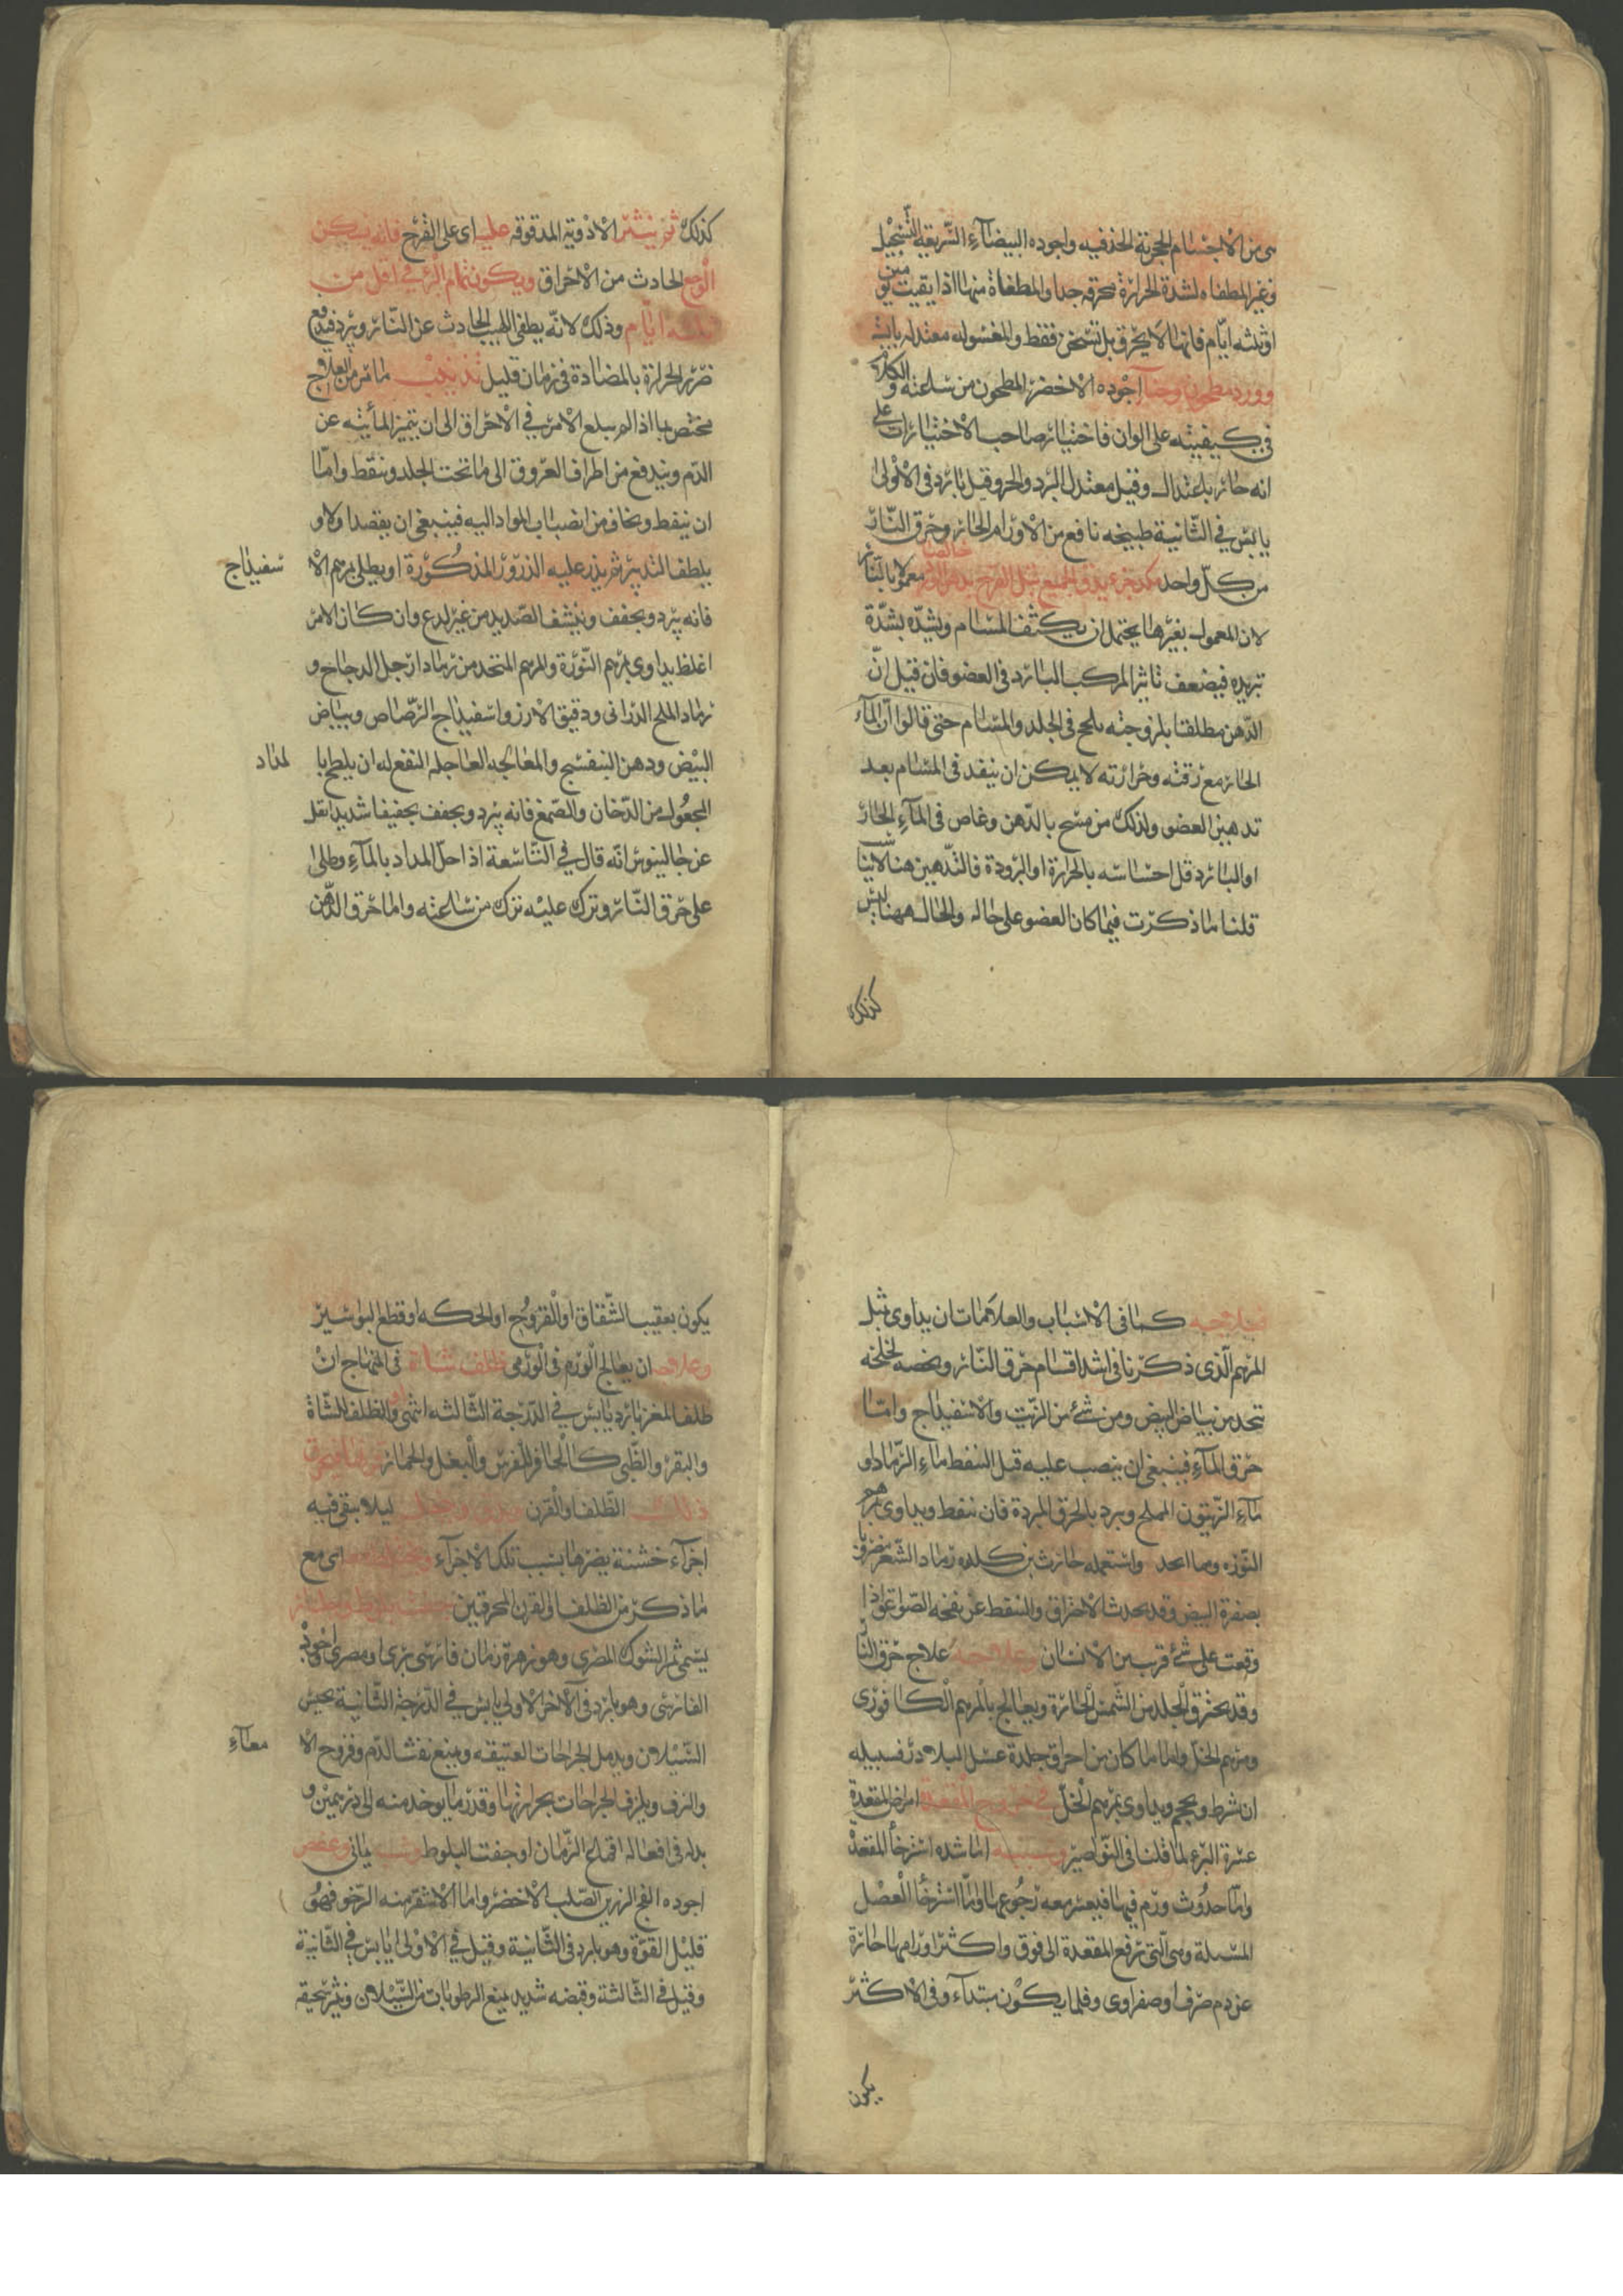 من الاجسام الحجرية الخذفيه واجوده البيضآء السّريعة
وغير المطفاه لشدة الحرارة محرقه جدا والمطفاة منها اذا بقيت يومين
اوثلثه ايّام فانها لا يحرق بل تسخن فقط والمغسوله معتدله يابسه
وورد مطحون وحنآ اجوده الاخضر المطحون من ساعته والكلام
فى كيفيته على الوان فاختيار صاحب الاختيارات على
انه حار باعتدال وقيل معتدل البرد والحر وقيل بارد فى الاولى
يابس في الثّانية طبيخه نافع من الاورام الحارّ وحرق النّار
من كلّ واحد جزء يدق الجميع القرح بدهن الورد خالصا معمولا بالنّار
لان المعمول بغيرها يحتمل ان يكثف المسام ويشدّه بشدّة
تبريده فيضعف تاثير المركب البارد فى العضو فان قيل انّ
الدّهن مطلقا بلزوجته يلحج فى الجلد والمسام حتى قالوا انّ المآء
الحار مع رقته وحرارته لا يمكن ان ينفد فى المسام بعد
تدهين العضو ولذلك من مسح بالدّهن وغاص فى المآء الحار
او البارد قل احساسه بالحرارة او البرودة فالتّدهين هنا لا يناسب
قلنا ما ذكرت فيما كان العضو على حاله والحال ههنا ليس
كذلك
كذلك ثم ينثر الادوية المدقوقه عليه اى على القرح فانه يسكن
الوجع الحادث من الاحراق ويكون تمام البرء في اقل من
ثلثه ايّام وذلك لانّه يطفى اللهب الحادث عن النّار ويبرد فيدفع
ضرر الحرارة بالمضادة فى زمان قليل تذنيب ما مر من العلاج
مختص بما اذا لم يبلغ الامر في الاحراق الى ان يتميز المائيه عن
الدّم ويندفع من اطراف العروق الى ما تحت الجلد وينفط وامّا
ان ينفط ويخاف من انصباب المواد اليه فينبغى ان يفصد اولا و
يلطف التدبير ثم يذر عليه الذرّور المذكورة او يطلى بمرهم الا
سفيداج
فانه يبرد ويجفف وينشف الصّديد من غير لدع وان كان الامر
اغلظ يداوى بمرهم النّورة والمرهم المتخد من رماد ارجل الدجاج و
رماد الملح الدرانى ودقيق الارز واسفيداج الرّصاص وبياض
البيض ودهن البنفسج والمعالجه العاجله النفع له ان يلطخ با
لمداد
المجعول من الدّخان والصّمغ فانه يبرد ويجفف تجفيفا شديدا نقل
عن جالينوس انّه قال في التّاسعة اذا حلّ المداد بالمآء وطلى
على حرق النّار وترك عليه نزك من ساعته واما حرق الدّهن
فعلاجه كما فى الاسباب والعلامات ان يداوى بمثل
المرهم الّذى ذكرنا فى اشد اقسام حرق النّار ويخصه لخلخه
تتخد من بياض البيض ومن شئ من الزيت والاسفيداج وامّا
حرق المآء فينبغى ان ينصب عليه قبل التنفط مآء الرّماد او
مآء الزّيتون المملح ويبرد بالخرق المبردة فان تنفط ويداوى بمرهم
النّوره ومما استعمله حارث بن كلده رماد الشّعير مضروبا
بصفرة البيض وقد يحدث الاحراق والتنفط عن نفخه الصّواعق اذا
وقعت على شئ قريب من الانسان وعلاجه علاج حرق النّار
وقد يحترق الجلد من الشّمس الحارّة ويعالج بالمرهم الكافورى
ومرهم الخل واما ما كان من احراق جلدة عسل البلادر فسبيله
ان شرط ويحجم ويداوى بمرهم الخلّ في خروج المقعدة امراض المقعدة
عسرة البرء لما قلنا فى النّواصير وسببه اما شده استرخآ المقعدة
وامّا حدوث ورم فيها فيعسر معه رجوعها وامّا استرخآ العضل
المسبلة وهى الّتى ترفع المقعدة الى فوق واكثر اورامها حارّة
عن دم صرف او صفراوى وقلما يكون ابتدآء وفى الاكثر
يكون
يكون بعقيب الشّقاق او القروح او الحكه او قطع البواسير
وعلاجه ان يعالج الورم فى الورمى ظلف شاة فى المنهاج ان
ظلف المعز بارد يابس في الدّرجة الثّالثه انتهى والظلف للشّاة
والبقر والظّبى كالحافر للفرس والبغل والحمار
ذلك الظّلف او القرن ليلا يبقى فيه
اجزآء خشنة يضرّها بسبب تلك الاجزآء اى مع
ما ذكر من الظلف والقرن المحرقين
يسمّى ثمر الشوك المصرى وهو زهرة رمان فارسى برى او مصرى اجوده
الفارسى وهو بارد فى الآخر الاولى يابس في الدّرجة الثّانية يحبس
السّيلان ويدمل الجراحات العتيقه ويمنع نفث الدّم وقروح الا
معآء
والنزف ويلزق الجراحات بحرارتها وقدر ما يوخد منه الى درهمين و
بدله فى افعاله اقماع الرّمان او جفت البلوط وشب يمانى وعفص
اجوده الفج الرزين الصّلب الاخضر واما الاشقر منه الرّخو فهو
قليل القوّة وهو بارد فى الثّانية وقيل في الاولى يابس في الثّانية
وقيل فى الثّالثة وقبضه شديد يمنع الرطوبات من السّيلان ونثر سحيقه